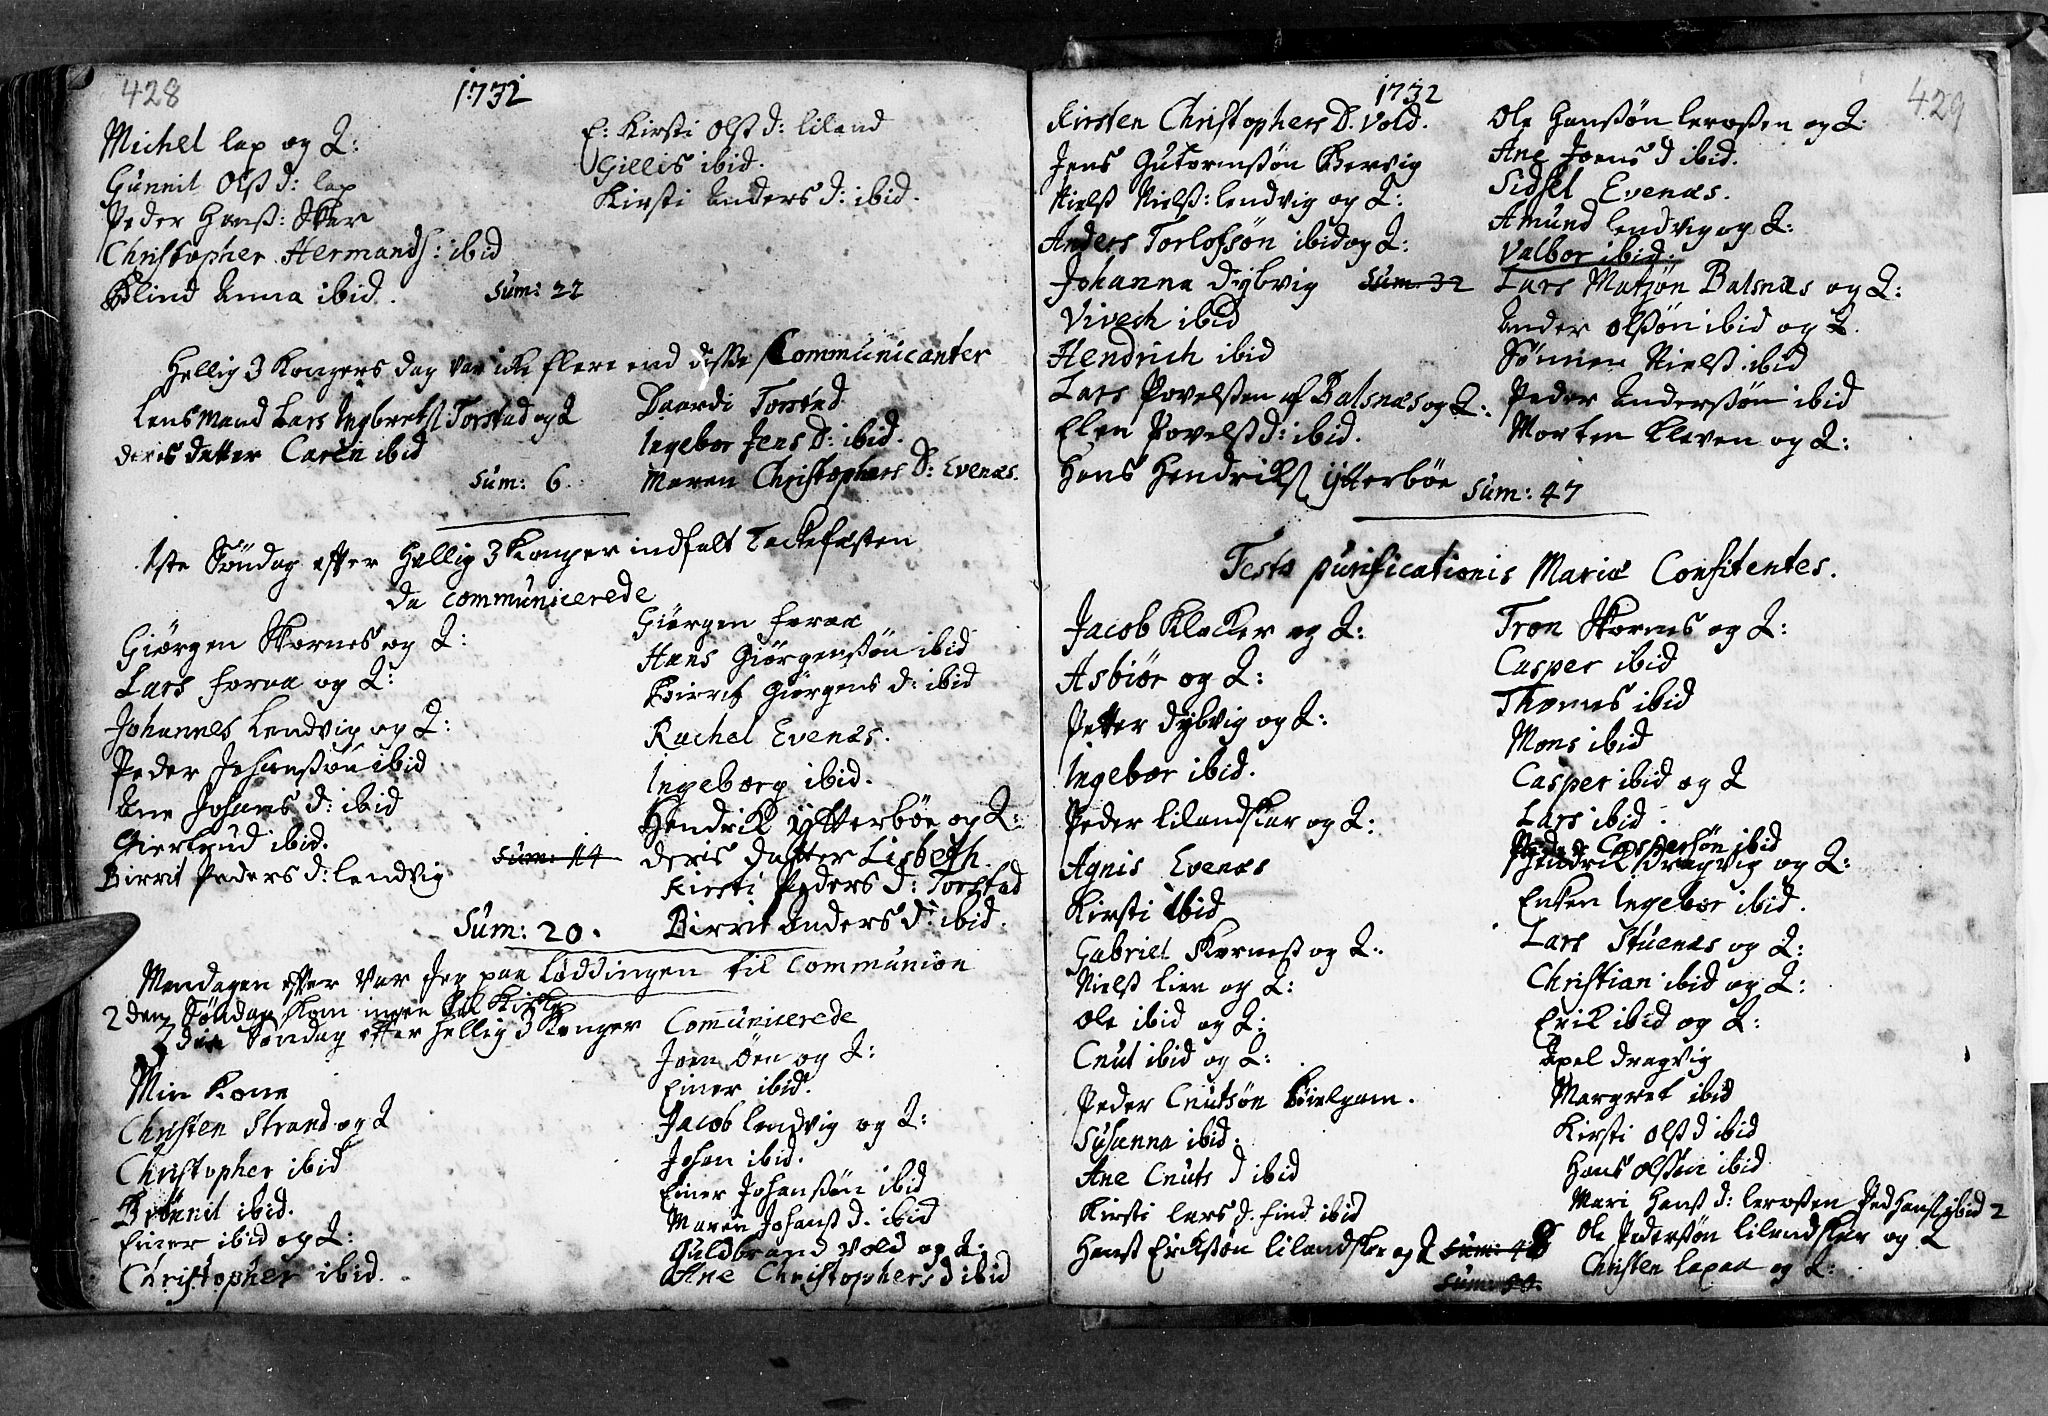 428
1732
Michel lap og Q:
Gunnil Olß d: lap
Peder Hanß: Skar
Christopher Hermands: ibid
Blind Anna ibid.
Sum: 22
E: Kirsti Olß d: liland
Gillis ibid.
Kirsti Anders d: ibid.
Hellig 3 Kongers dag var icke flere end disse Communicanter
Lens Mand Lars Ingbretß Torstad og Q
deris datter Caren ibid
Sum: 6.
Baardi Torstad
Ingebor Jens D: ibid.
Maren Christophers D: Evenæs.
1ste Søndag efter Hellig 3 Konger indfalt Tackefæsten
da communicerede
Giørgen Skarnes og Q:
Lars foraa og Q:
Johannes Lendvig og Q:
Peder Johanßøn ibid
Ane Johans d: ibid
Giertrud ibid.
Birrit Peders d: lendvig
Sum: 14
Sum: 20.
Giørgen foraa
Hans Giørgenßøn ibid
Birrit Giørgens d: ibid
Rachel Evenæs.
Ingeborg ibid.
Hendrik Ytterbøe og Q:
deris datter Lisbeth.
Kirsti Peders d: Torstad
Birrit Anders d: ibid.
Mandagen efter var Jeg paa Løddingen til Communion
2den Søndag kom ingen til Kirke
3die Søndag efter Hellig 3 Konger
Communicerede
Min Kone
Christen Strand og Q
Christopher ibid
Brønnil ibid.
Einer ibid og Q:
Christopher ibid.
Joen Øen og Q:
Einer ibid.
Jacob lendvig og Q:
Johan ibid.
Einer Johanßøn ibid
Maren Johanß d. ibid
Guldbrand Vold og Q:
Ane Christophers d ibid
1732
429
Kirsten Christophers D. Vold.
Jens Gutormßøn Bervig
Nielß Nielß: lendvig og Q:
Anders Torlofsøn ibid og Q:
Johanna dybvig
Sum: 32
Vivech ibid
Hendrich ibid
Lars Povelßen af Balsnæs og Q:
Elen Povelß d: ibid.
Hans Hendrikß Ytterbøe
Sum: 47
Ole Hanßøn leroßen og Q
Ane Joens d ibid.
Sidsel Evenæs.
Amund lendvig og Q:
Valbor ibid.
Lars Matsøn Balsnæs og Q:
Ander Olßøn ibid og Q.
Sønnen Nielß ibid
Peder Anderßøn ibid
Morten Kleven og Q:
Festo purificationis Mariæ Confitentes.
Jacob Klocker og Q:
Asbiør og Q:
Petter dybvig og Q:
Ingebor ibid.
Peder Lilandskar og Q:
Agnis Evenæs
Kirsti ibid
Gabriel Skarneß og Q:
Nielß lien og Q:
Ole ibid og Q:
Cnut ibid og Q:
Peder Cnutsøn Kielgam.
Susanna ibid.
Ane Cnuts d ibid
Kirsti lars d. find ibid
Hanß Erikßøn lilandskar og Q
Tron Skarnes og Q:
Casper ibid
Thomes ibid
Mons ibid
Casper ibid og Q
Lars ibid
Peder Caspersøn ibid
Hendrik dragvig og Q:
Enken Ingebor ibid.
Lars Stuenæs og Q:
Christian ibid og Q:
Erik ibid og Q:
Axel dragvig
Margret ibid
Kirsti Olß d ibid
Hans Olßøn ibid
Mari Hanß d: leroßen Ped Hanß ibid 2
Ole Pederßøn lilandskar og Q
Christen lapaa og Q: